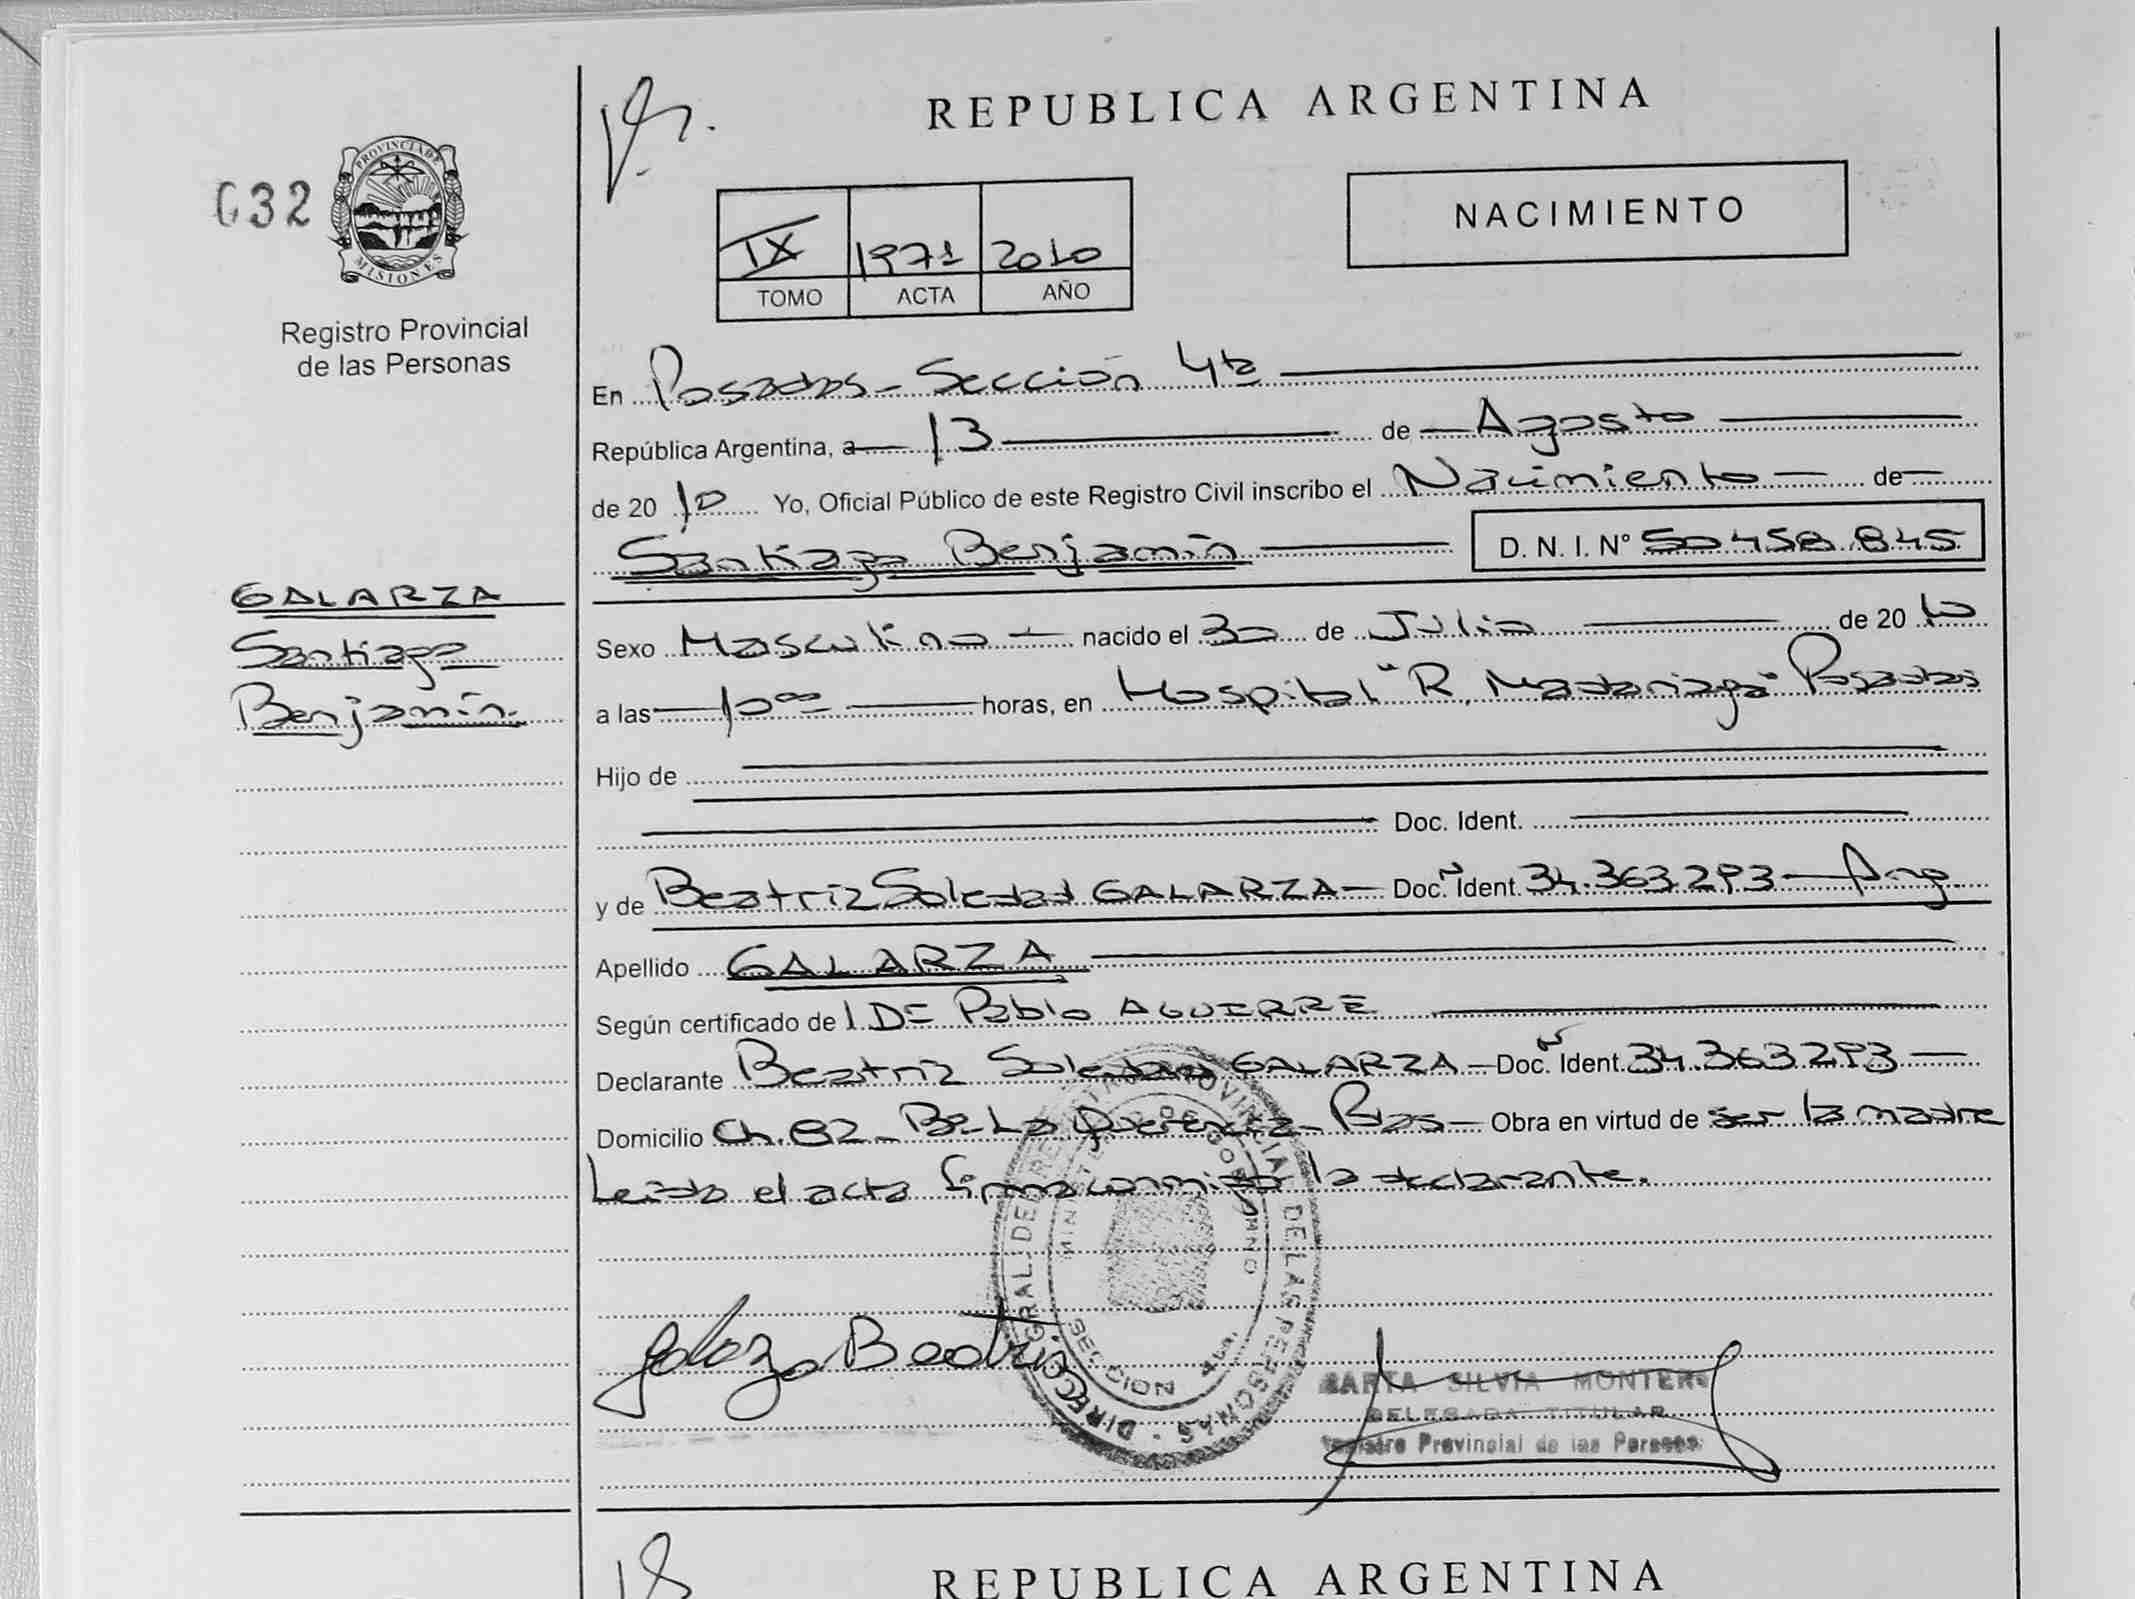 REPUBLICA ARGENTINA
032
PROVINCIA DE
MISIONES
Registro Provincial
de las Personas
NACIMIENTO
IX 1971 2010
TOMO ACTA AÑO
En Posadas - Sección 4ta
República Argentina, a 13 de Agosto
de 2010 Yo, Oficial Público de este Registro Civil inscribo el Nacimiento de
Santiago Benjamín D. N. I. N° 50458.845
GALARZA
Santiago
Benjamín.
Sexo Masculino nacido el 30 de Julio de 2010
a las 10 00 horas, en Hospital "R. Madariaga" Posadas
Hijo de
Doc. Ident.
y de Beatriz Soledad GALARZA - Doc. Ident. 34.363.293 - Arg.
Apellido GALARZA
Según certificado de Pablo AGUIRRE
Declarante Beatriz Soledad GALARZA - Doc. Ident. 34.363.293 -
Domicilio Ch. 82 - Bº La Querencia - Obra en virtud de ser la madre
Leida el acta firma conmigo la declarante.
Galarza Beatriz
DIREC. GRAL. DE REGISTRO PROVINCIAL DE LAS PERSONAS
MINISTERIO DE GOBIERNO
SECCION 4ta.
MARTA SILVIA MONTERO
DELEGADA TITULAR
Registro Provincial de las Personas
18
REPUBLICA ARGENTINA